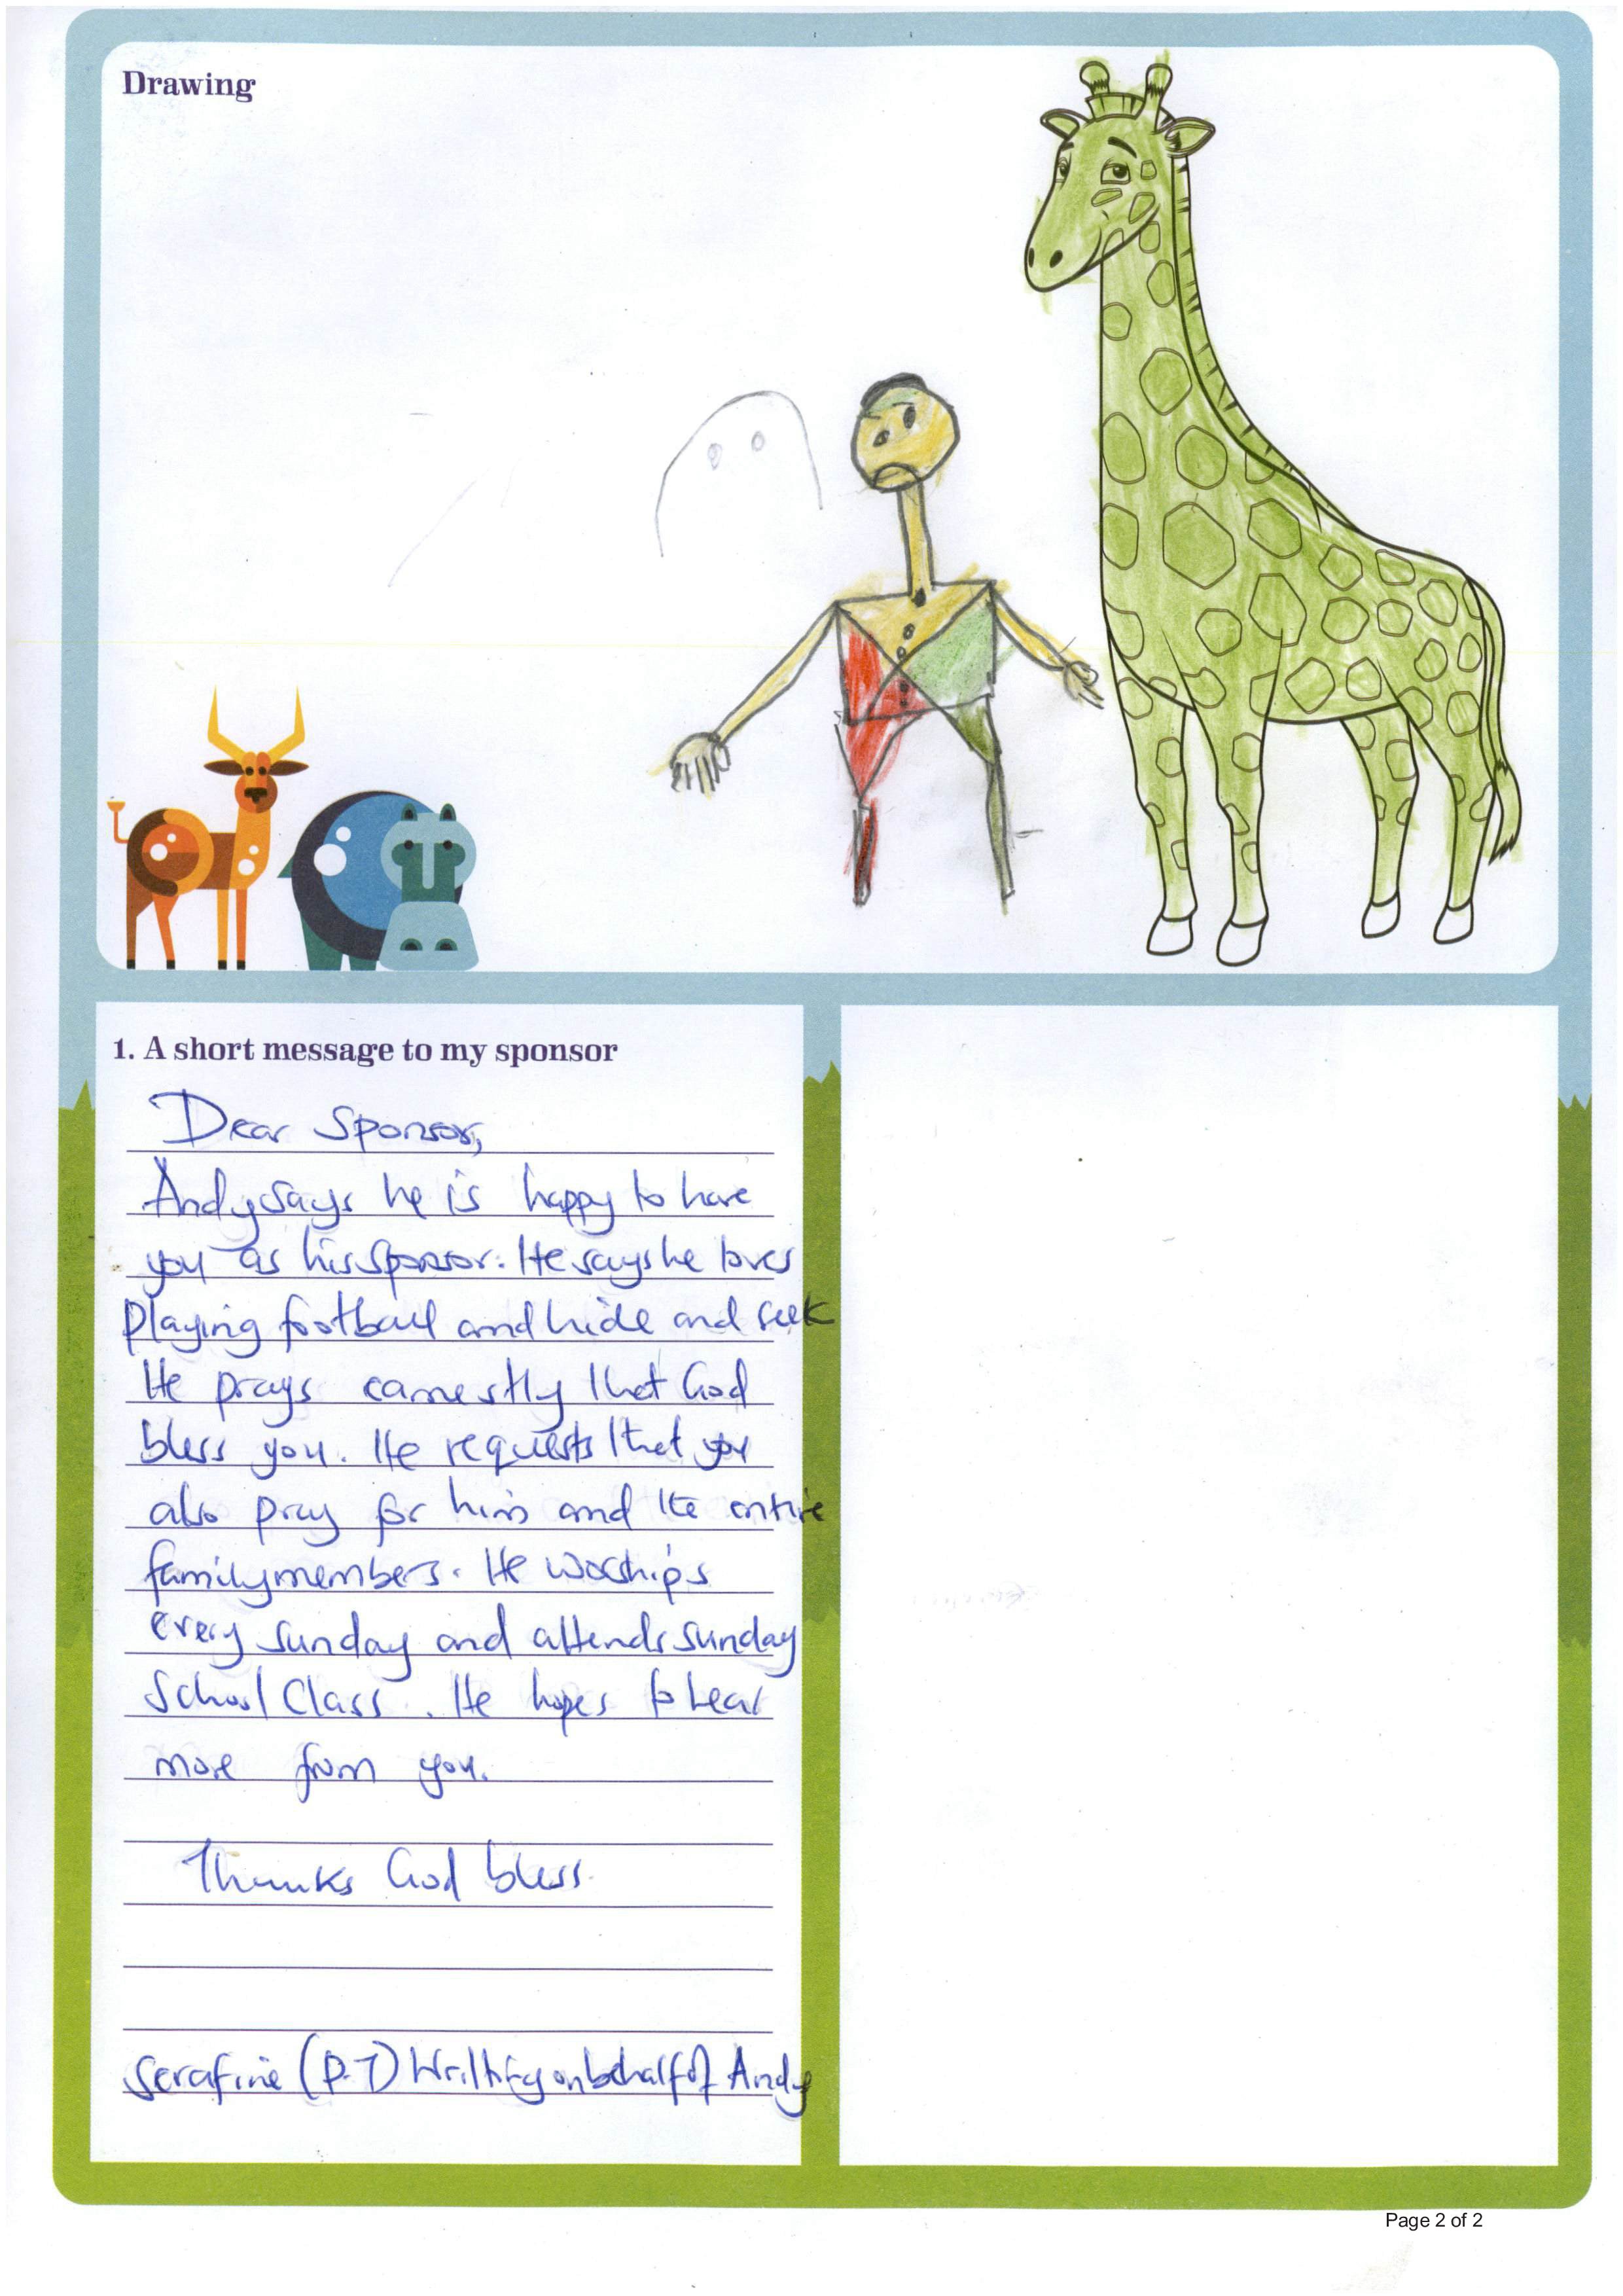 Drawing
1. A short message to my sponsor
Dear Sponsor,
Andy says he is happy to have
you as his sponsor. He says he loves
playing football and hide and seek
He prays earnestly that God
bless you. He requests that you
also pray for him and the entire
family members. He worships
every sunday and attends sunday
School Class. He hopes to hear
more from you.
Thanks God bless.
Serafine (P.T) on behalf of Andy
Page 2 of 2